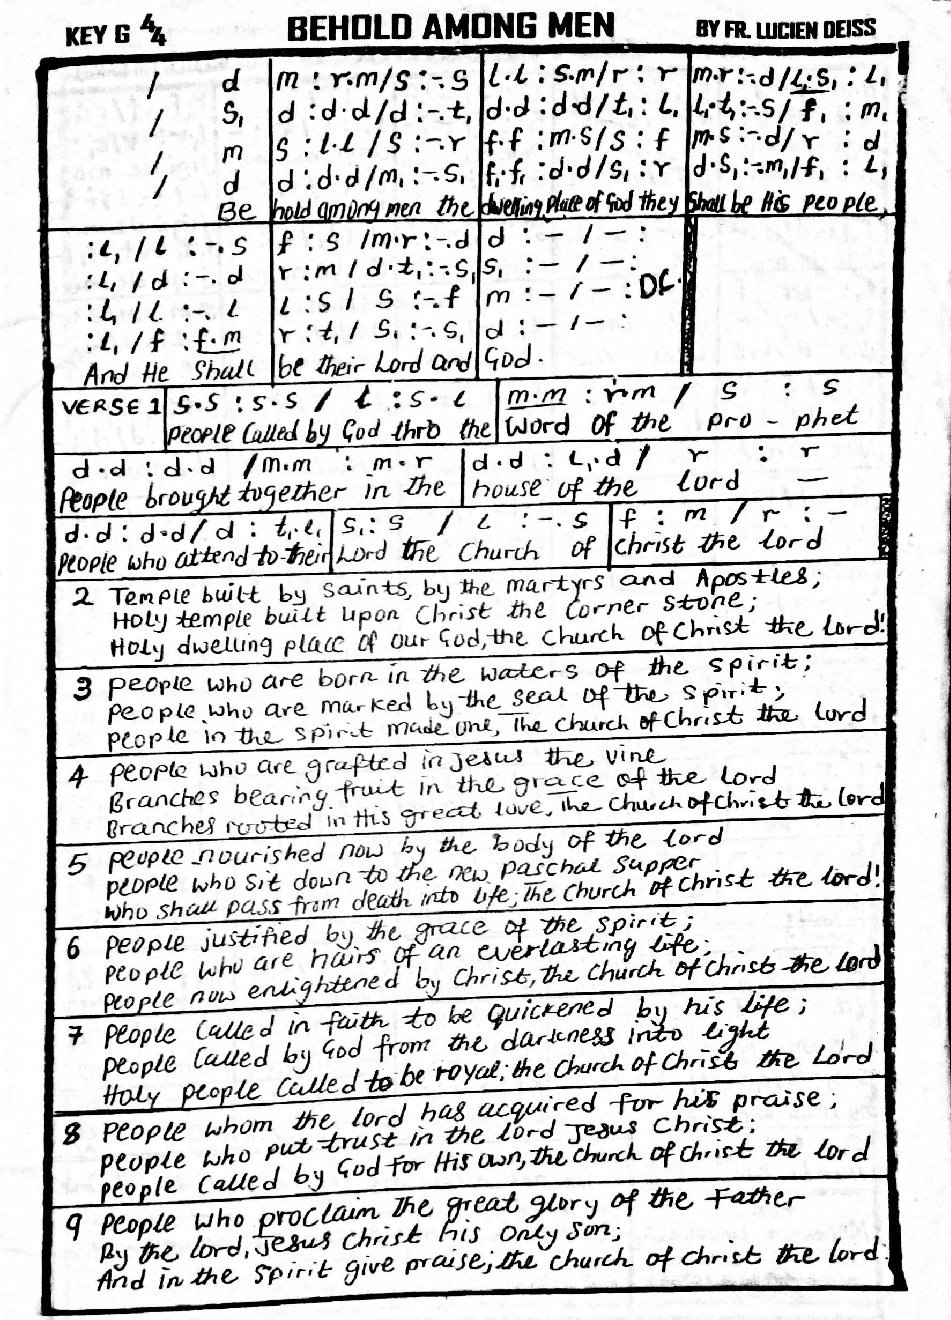 KEY G 4/4 BEHOLD AMONG MEN BY FR. LUCIEN DEISS
/ d | m : r.m/s :-. s | l.l : s.m/r : r | m.r:-.d/l₁.s₁ : l₁
/ s₁ | d : d.d/d :-. t₁ | d.d : d.d/t₁ : l₁ | l₁.t₁:-.s/ f₁ : m₁
/ m | s : l.l / s :-. r | f.f : m.s/s : f | m.s:-.d/ r : d
/ d | d : d.d/m₁ :-. s₁ | f₁.f₁ : d.d/s₁ : r | d.s₁:-.m₁/f₁ : l₁
Be hold among men the dwelling place of God they Shall be His people,
: l₁ / l :-. s | f : s /m.r :-.d | d : – / – :
: l₁ / d :-. d | r : m / d.t₁ :-. s₁ | s₁ : – / – :
: l₁ / l :-. l | l : s / s :-. f | m : – / – : DC.
: l₁ / f : f.m | r : t₁ / s₁ :-. s₁ | d : – / – :
And He Shall be their Lord and God.
VERSE 1 s.s : s.s / l : s.l | m.m : r.m / s : s
people Called by God thro the Word of the pro - phet
d.d : d.d /m.m : m.r | d.d : l₁.d / r : r
People brought together in the house of the lord —
d.d : d.d/ d : t₁.l₁ | s₁ : s / l :-. s | f : m / r : –
People who attend to their Lord the Church of Christ the lord
2 Temple built by Saints, by the martyrs and Apostles;
Holy temple built upon Christ the corner stone;
Holy dwelling place of our God, the church of Christ the lord!
3 people who are born in the waters of the spirit;
people who are marked by the seal of the spirit;
people in the spirit made one, The church of Christ the lord
4 people who are grafted in jesus the vine
Branches bearing fruit in the grace of the Lord
Branches rooted in His great love, the church of christ the lord
5 people nourished now by the body of the lord
people who sit down to the new paschal supper
who shall pass from death into life; The church of christ the lord!
6 people justified by the grace of the spirit;
people who are hairs of an everlasting life;
people now enlightened by Christ, the church of Christ the lord
7 people called in faith to be quickened by his life;
people Called by God from the darkness into light
Holy people called to be royal; the church of Christ the Lord
8 people whom the lord has acquired for his praise;
people who put trust in the lord Jesus Christ;
people called by God for His own, the church of christ the lord
9 people who proclaim the great glory of the Father
By the lord, jesus christ his only son;
And in the spirit give praise; the church of christ the lord